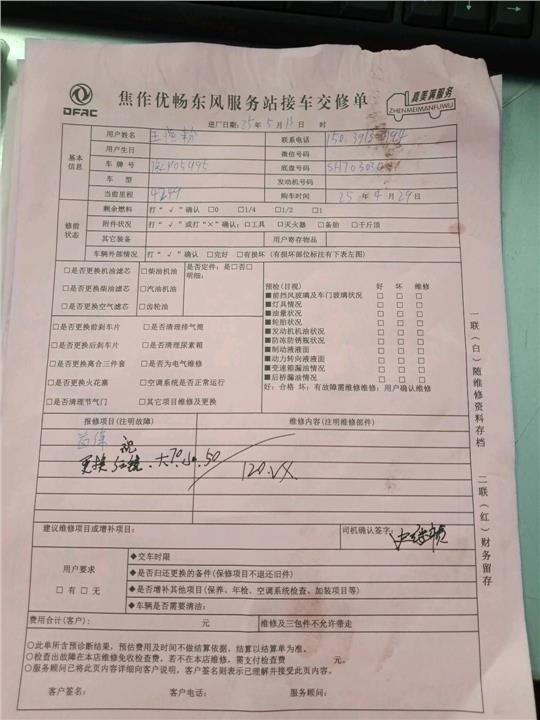 DFAC
焦作优畅东风服务站接车交修单
真美满服务
ZHENMEIMANFUWU
进厂日期:25年5月13日 时
基本信息
用户姓名
联系电话
用户生日
微信号码
车牌号
底盘号码
车型
发动机号码
当前里程
购车时间 25年4月29日
修前状态
剩余燃料 打“√”确认 □0 □1/4 □1/2 □1
附件状况 打“√”或打“×”确认:□工具 □灭火器 □备胎 □千斤顶
其它装备
用户寄存物品
车辆外部情况 打“√”确认 □完好 □有损坏 (有损坏部位标注有下表左图)
□是否更换机油滤芯 □柴油机油 是否定件:是□否□
明细:
□是否更换柴油滤芯 □汽油机油
□是否更换空气滤芯 □齿轮油
□是否更换前刹车片 □是否清理排气筒
□是否更换后刹车片 □是否清理尿素箱
□是否更换离合三件套 □是否为电气维修
□是否更换火花塞 □空调系统是否正常运行
□是否清理节气门 □其它项目维修及更换
预检(目视) 好 坏 维修
■前挡风玻璃及车门玻璃状况 □ □ □
■灯具情况 □ □ □
■油量状况 □ □ □
■轮胎状况 □ □ □
■发动机机油状况 □ □ □
■防冻防锈瓶状况 □ □ □
■制动液液面 □ □ □
■动力转向液液面 □ □ □
■变速箱漏油情况 □ □ □
■后桥漏油情况 □ □ □
好:合格 坏:有故障需维修维修:用户确认维修
报修项目(注明故障)
维修内容(注明维修部件)
更换
大70 小50
120.
建议维修项目或增补项目:
司机确认签字:
用户要求
□有 □无
◆交车时限
◆是否归还更换的备件(保修项目不退还旧件)
◆是否增补其他项目(保养、年检、空调系统检查、加装项目等)
◆车辆是否需要清洁:
费用合计(客户): 元
维修及三包件不允许带走
○此单所含预诊断结果,预估费用及时间不做结算依据,结算以结算单为准。
○检查出故障在本店维修免收检查费,若不在本店维修,需支付检查费 元。
○服务顾问已将此页内容详细向客户说明,客户签名则表示已理解并接受此页内容。
客户签名: 客户电话: 服务顾问:
一联(白)随维修资料存档
二联(红)财务留存